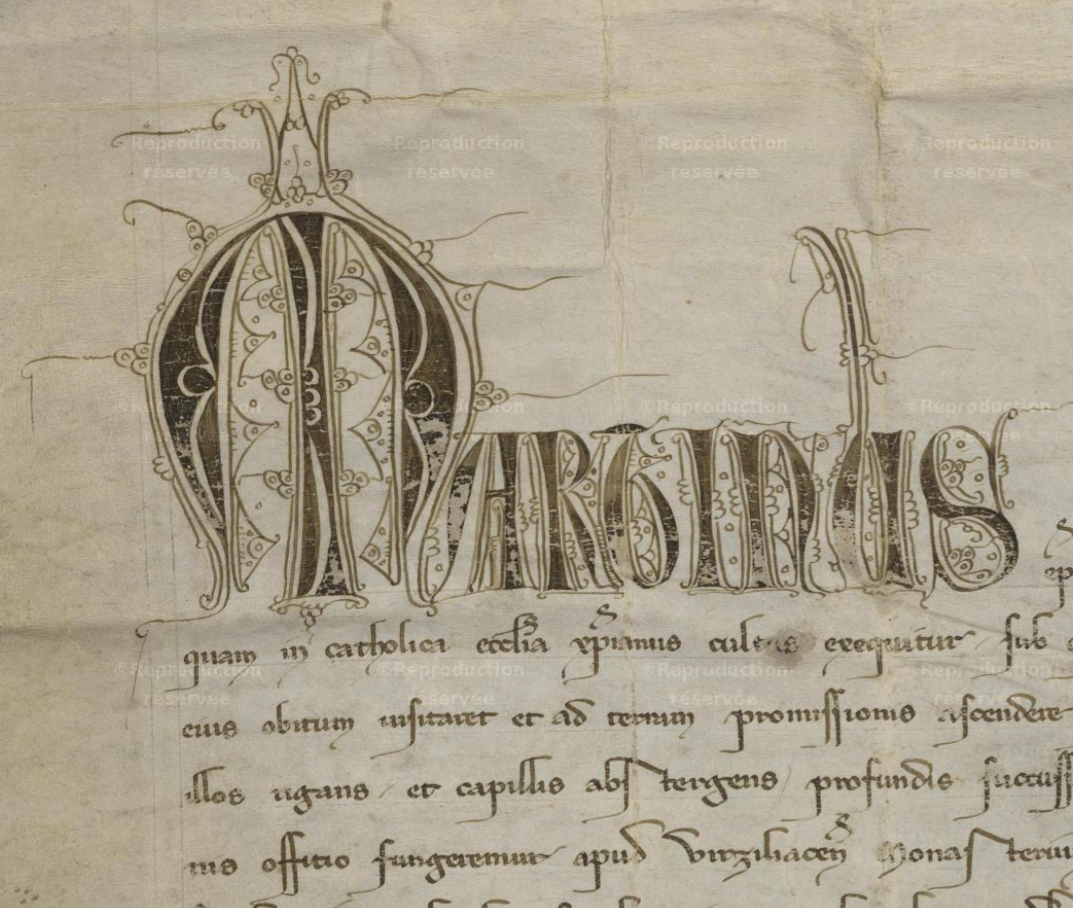 MARTINUS
quam in catholica ecclīa xp̄ianus cultus exequitur sub
eius obitum uisitaret et ad terram promissionis ascendere
illos rigans et capillis abstergens profundis
nis offitio fungeremur apud Virziliacen̄ Monasteriu